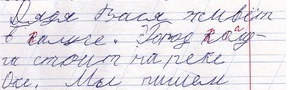 Дядя Вася живёт
в Калуге. Город Калу-
га стоит на реке
Оке. Мы пишем